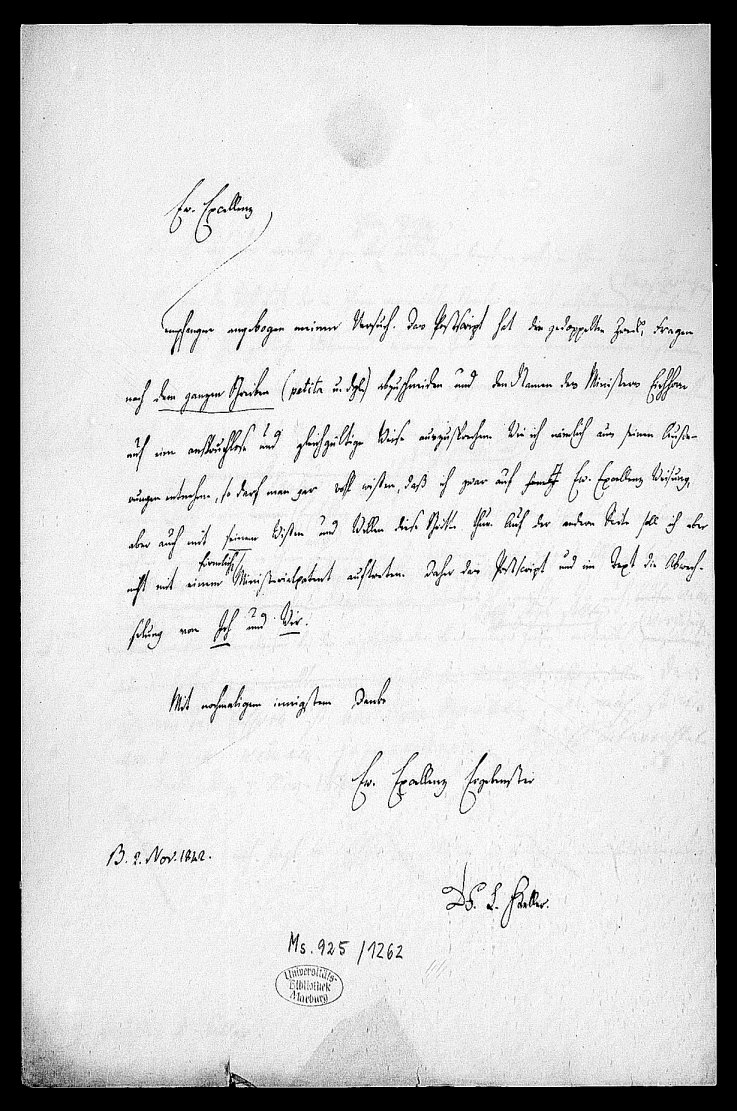 Ew. Excellenz
empfangen angebogen meinen Versuch. Das Postscript hat den gedoppelten Zweck, Fragen
nach dem ganzen Schreiben (petita u. dgl.) abzuschneiden und den Namen des Ministers Eichhorn
auf eine anspruchlose und gleichgültige Weise auszusprechen. Wie ich nämlich aus seinen Äuße-
rungen entnehme, so darf man gar wohl wissen, daß ich zwar auf Ew. Excellenz Weisung,
aber auch mit seinem Wissen und Willen diese Schritte thue. Auf der andern Seite soll ich aber
nicht mit einem förmlichen Ministerialpatent auftreten. Daher das Postscript und im Text die Abwech-
selung von Ich und Wir.
Mit nochmaligem innigstem Danke
Ew. Excellenz Ergebenster
B. 2. Nov. 1842.
L. Haller.
Ms. 925/1262
Universitäts-
Bibliothek
Marburg